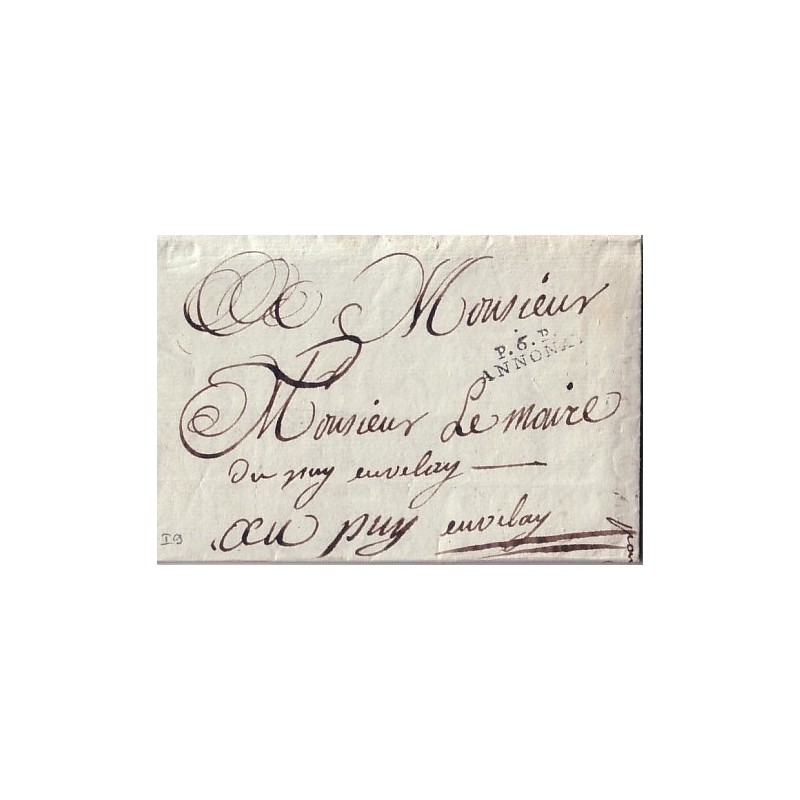 A Monsieur
P.6.P.
ANNONA
Monsieur Le maire
du puy envelay
au puy envelay
I9